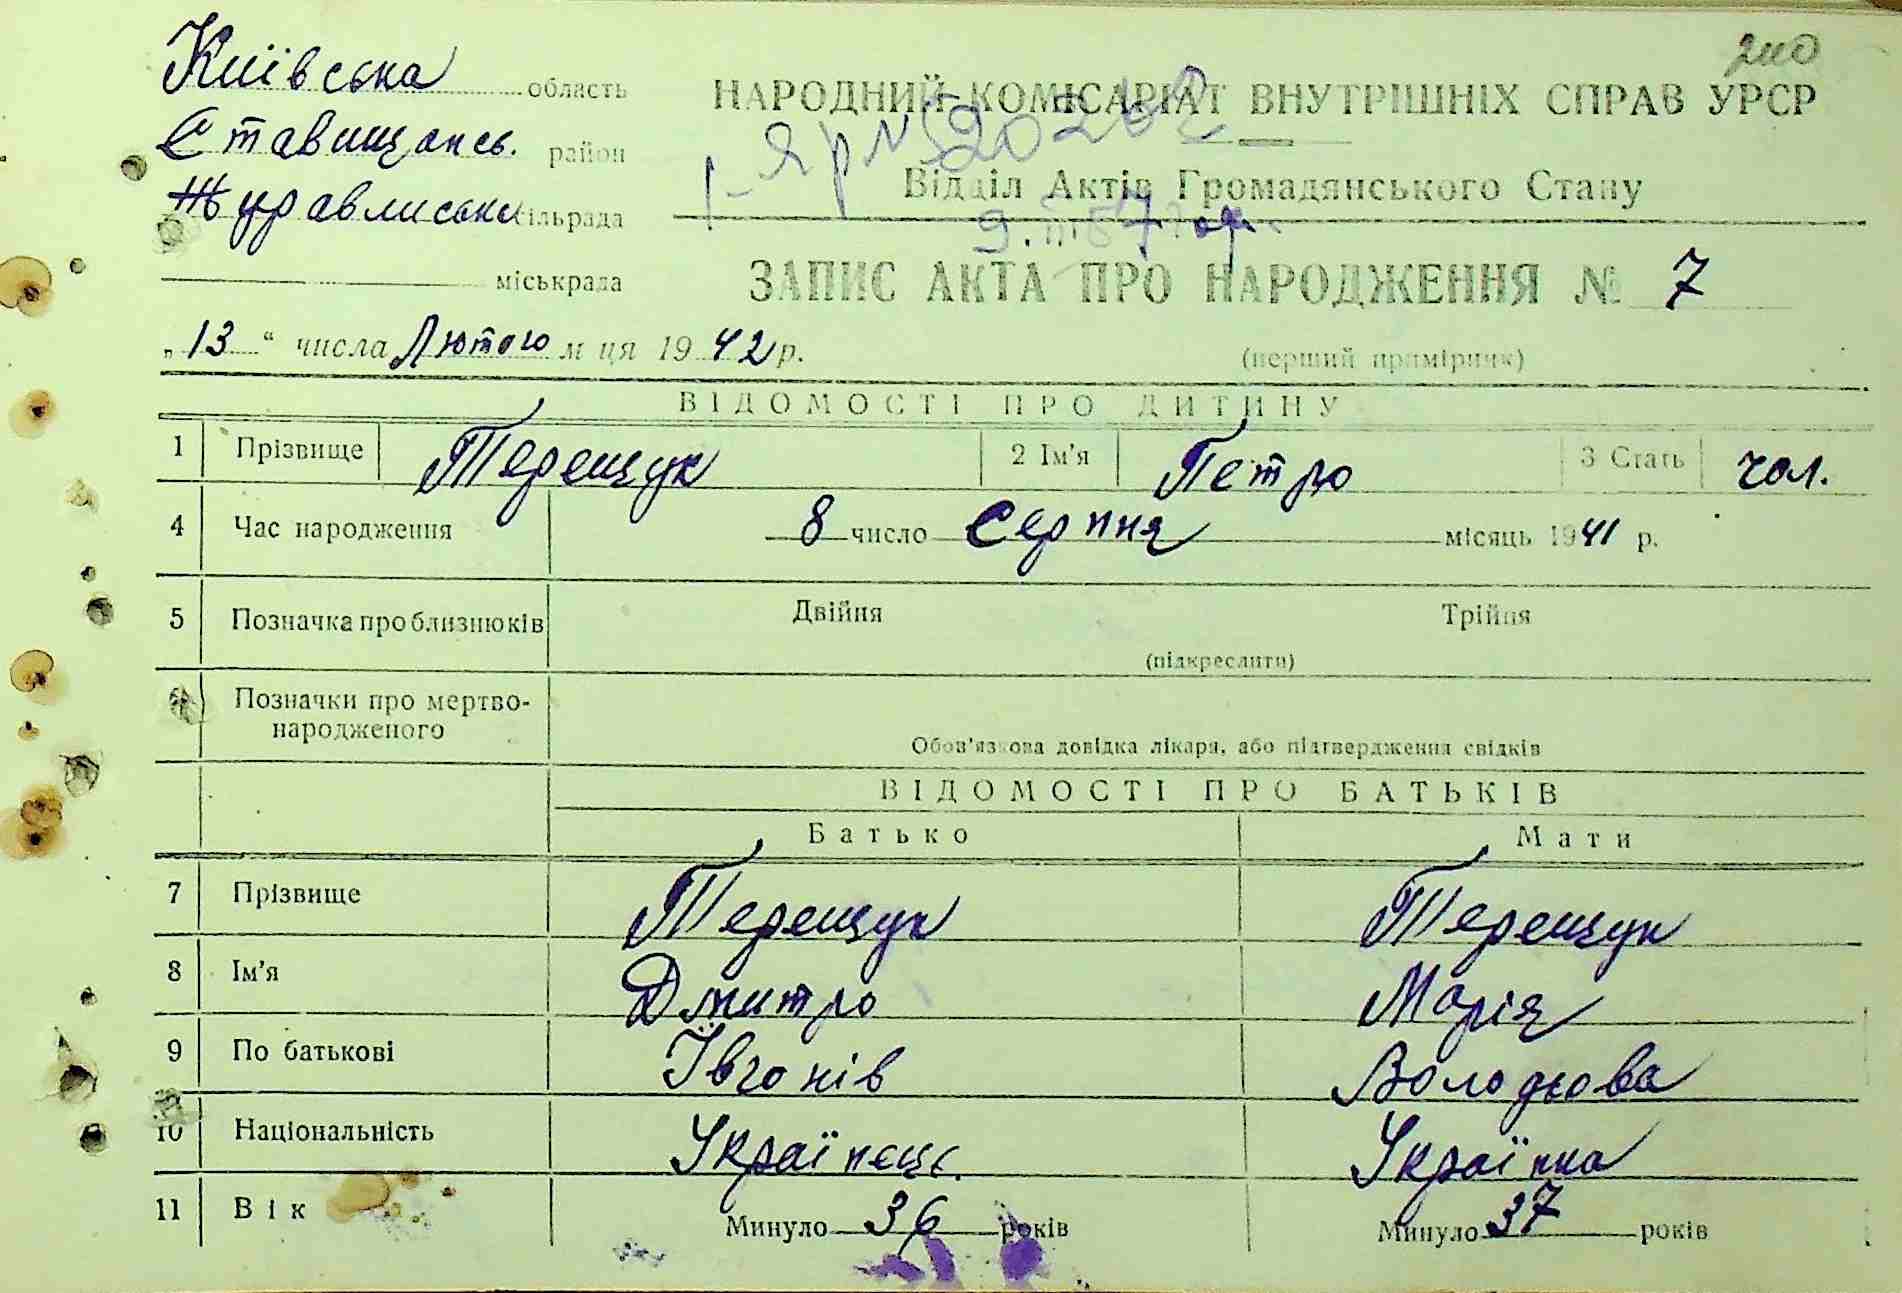 200
Київська область
НАРОДНИЙ КОМІСАРІАТ ВНУТРІШНІХ СПРАВ УРСР
Ставищансь. район
Відділ Актів Громадянського Стану
Журавлиська сільрада
міськрада
ЗАПИС АКТА ПРО НАРОДЖЕННЯ № 7
„13“ числа Лютого м ця 1942 р.
(перший примірник)
ВІДОМОСТІ ПРО ДИТИНУ
1 Прізвище Терещук 2 Ім'я Петро 3 Стать чол.
4 Час народження 8 число Серпня місяць 1941 р.
5 Позначка про близнюків Двійня Трійня
(підкреслити)
6 Позначки про мертво-
народженого
Обов'язкова довідка лікаря, або підтвердження свідків
ВІДОМОСТІ ПРО БАТЬКІВ
Батько Мати
7 Прізвище Терещук Терещук
8 Ім'я Дмитро Марія
9 По батькові Івгонів Володьова
10 Національність Українець. Українка
11 Вік Минуло 36 років Минуло 37 років